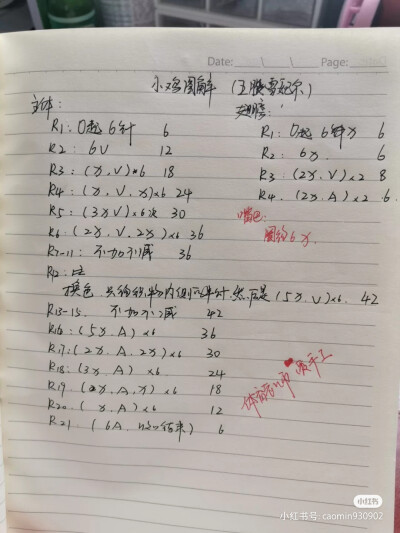 Date:
Page:
小鸡图解 (五股雪妃尔)
主体:
R1: 0起 6针 6
R2: 6V 12
R3: (X, V)*6 18
R4: (X, V, X)×6 24
R5: (3X V)×6次 30
R6: (2X, V, 2X)×6 36
R7-11: 不加不减 36
R12:
换色 只钩织物内侧
然后是 (5X, V)×6. 42
R13-15. 不加不减 42
R16: (5X, A) ×6 36
R17: (2X, A, 2X) ×6 30
R18: (3X, A) ×6 24
R19. (X, A, X) ×6 18
R20. (X, A) ×6 12
R21. (6A, 结束) 6
翅膀:
R1: 0起 6针X 6
R2: 6X. 6
R3: (2X, V)×2 8
R4. (2X. A)×2 6
嘴巴:
圈钩6X.
爱手工
小红书
小红书号: caomin930902